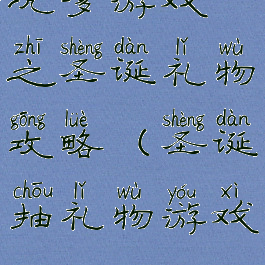 宠爹游戏
zhī shèng dàn lǐ wù
之圣诞礼物
gōng lüè shèng dàn
攻略(圣诞
chōu lǐ wù yóu xì
抽礼物游戏